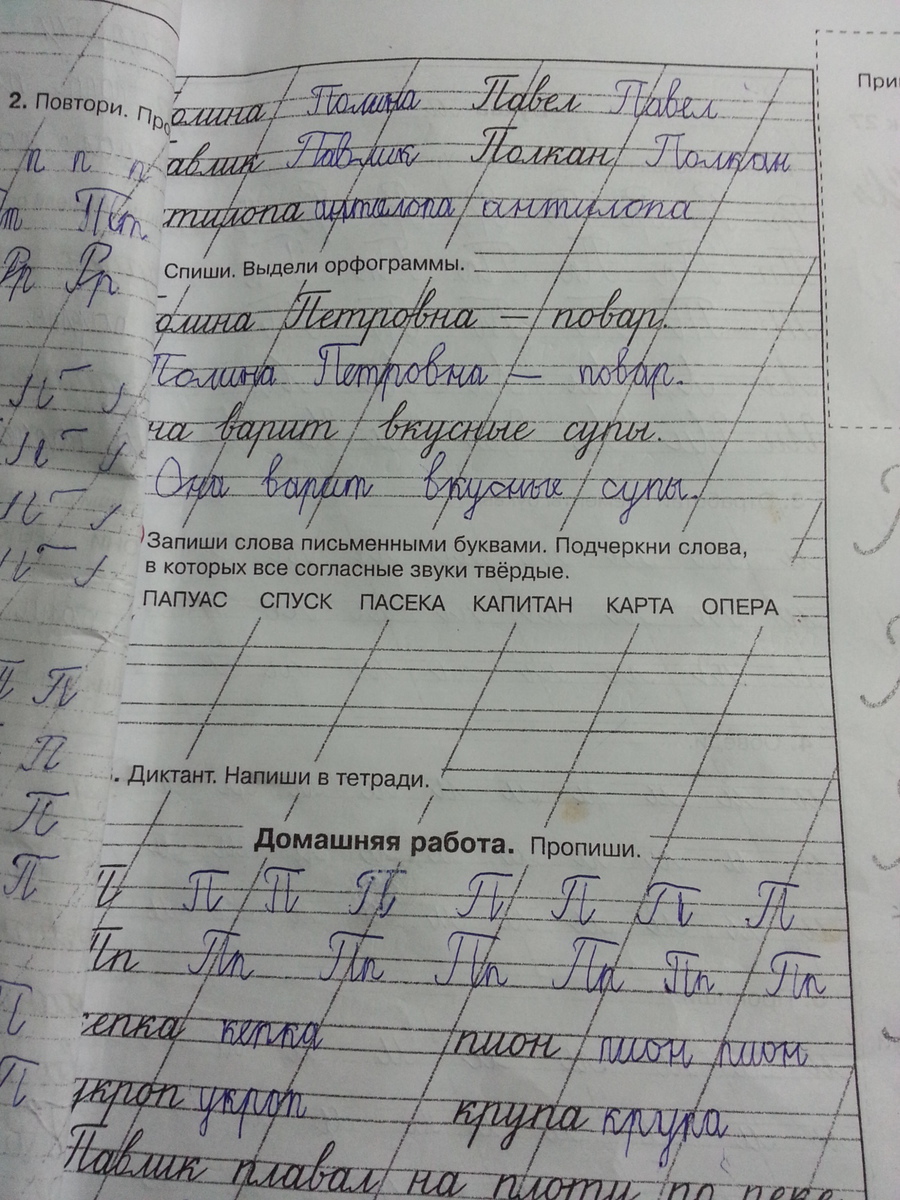 2. Повтори.
п п п
Пп
Рр Рр
олина Полина Павел Павел
авлик Павлик Полкан Полкан
тилопа антилопа антилопа
Спиши. Выдели орфограммы.
олина Петровна — повар.
Полина Петровна — повар.
на варит вкусные супы.
Она варит вкусные супы.
Запиши слова письменными буквами. Подчеркни слова,
в которых все согласные звуки твёрдые.
ПАПУАС СПУСК ПАСЕКА КАПИТАН КАРТА ОПЕРА
. Диктант. Напиши в тетради.
Домашняя работа. Пропиши.
П П П П П П П П
Пп Пп Пп Пп Пп Пп Пп
епка кепка пион пион пион
укроп укроп крупа крупа
Павлик плавал на плоту по реке
П
П
П
П
При